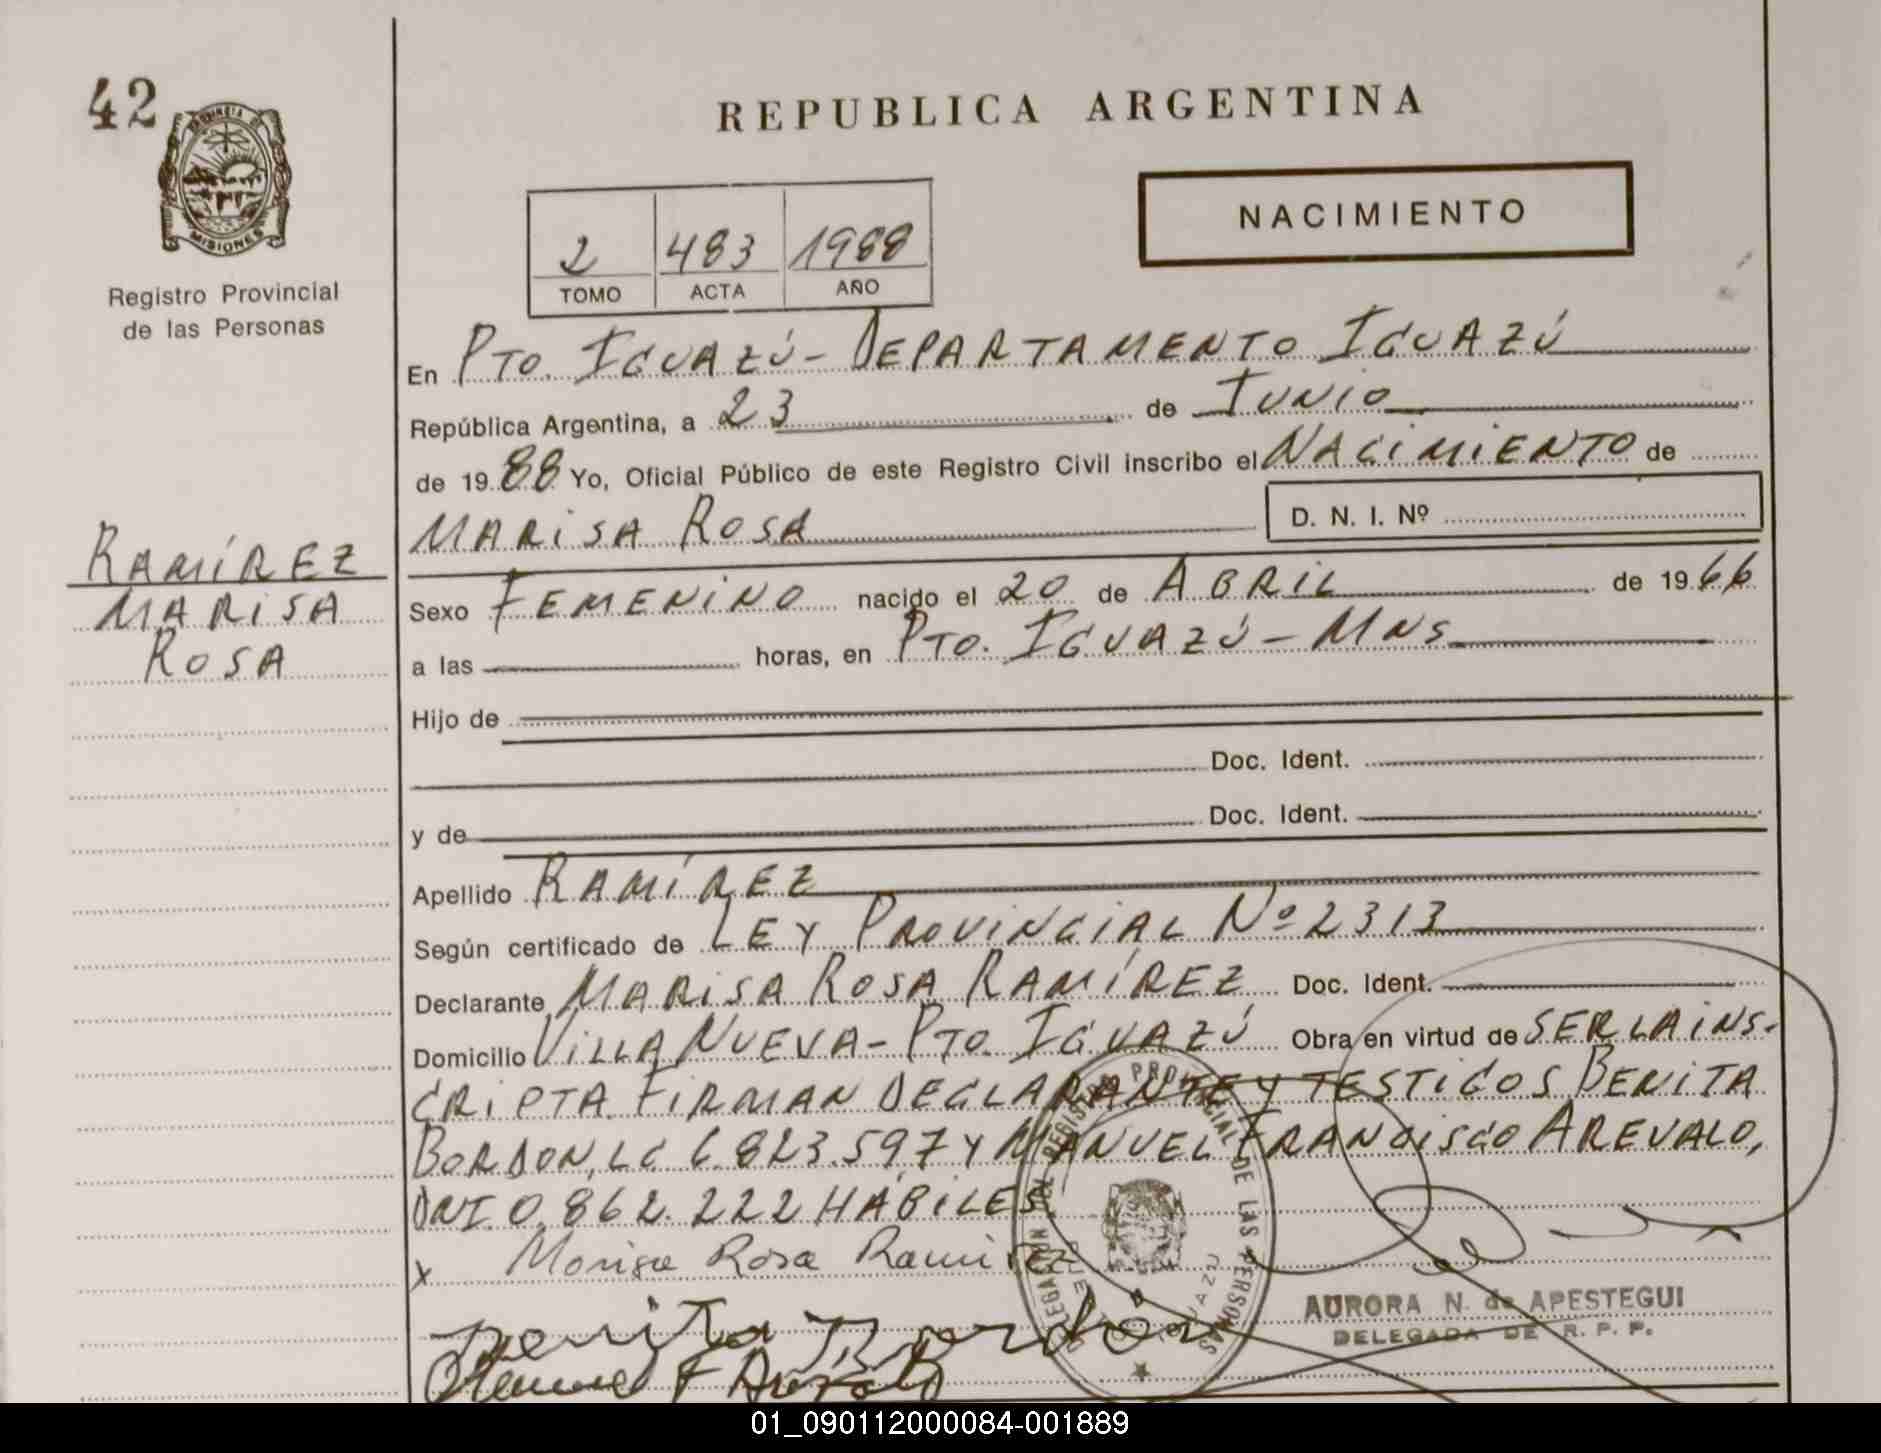 42
REPUBLICA ARGENTINA
PROVINCIA DE
MISIONES
Registro Provincial
de las Personas
NACIMIENTO
2 483 1988
TOMO ACTA AÑO
En PTO. IGUAZÚ - DEPARTAMENTO IGUAZÚ
República Argentina, a 23 de JUNIO
de 1988 Yo, Oficial Público de este Registro Civil inscribo el NACIMIENTO de
MARISA ROSA D. N. I. Nº
RAMÍREZ
MARISA
ROSA
Sexo FEMENINO nacido el 20 de ABRIL de 1966
a las horas, en PTO. IGUAZÚ - MNS
Hijo de
Doc. Ident.
y de Doc. Ident.
Apellido RAMÍREZ
Según certificado de LEY PROVINCIAL Nº 2313
Declarante MARISA ROSA RAMÍREZ Doc. Ident.
Domicilio VILLA NUEVA - PTO. IGUAZÚ Obra en virtud de SER LA INS-
CRIPTA. FIRMAN DECLARANTE Y TESTIGOS BENITA
BORDON, LC 6.823.597 Y MANUEL FRANCISCO AREVALO,
DNI 0.862.222 HÁBILES
x Marisa Rosa Ramirez
Benita Bordón
Manuel F Arevalo
REGISTRO PROVINCIAL DE LAS PERSONAS
IGUAZU
AURORA N. de APESTEGUI
DELEGADA DE R. P. P.
01_090112000084-001889